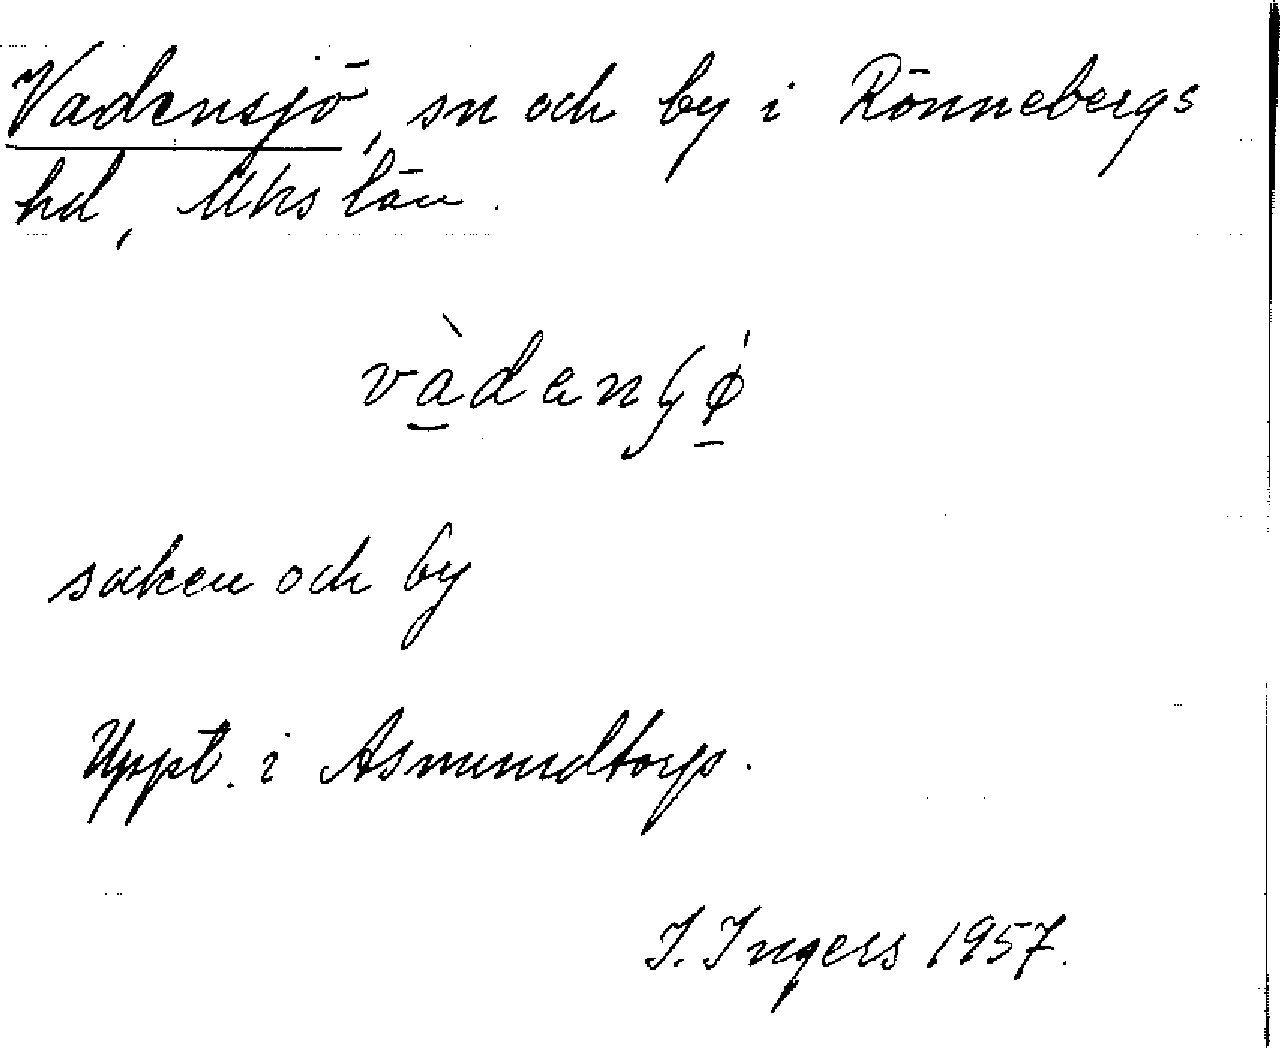 Vadensjö, sn och by i Rönnebergs
hd, Mhs län.
vàdenʂø̍
socken och by
Uppt. i Asmundtorp.
I. Ingers 1957.